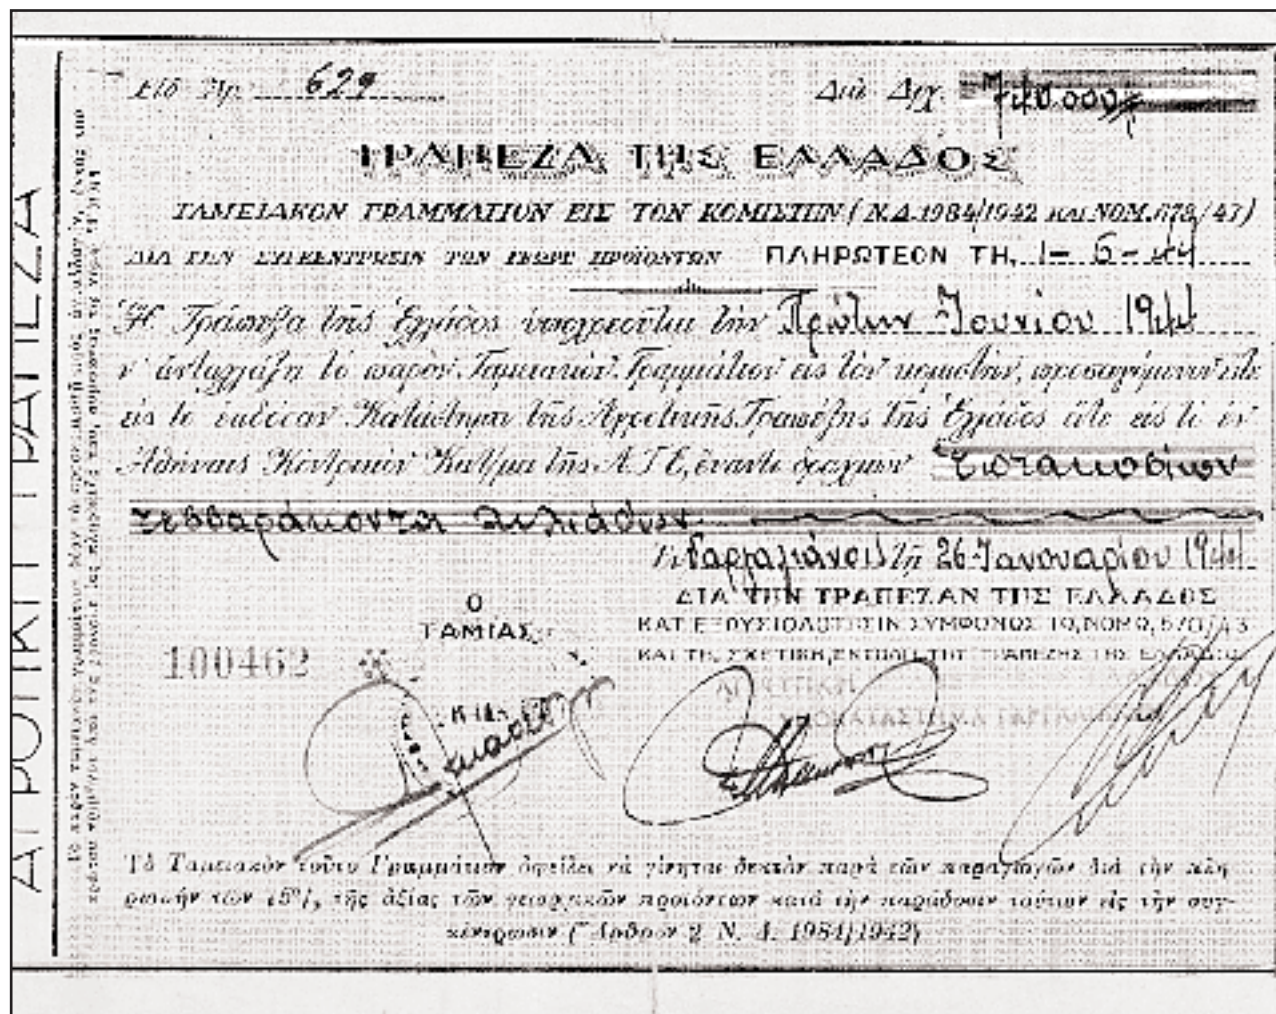 Εἰδ Ἀρ. 629
Διὰ Δρχ. 740.000
ΤΡΑΠΕΖΑ ΤΗΣ ΕΛΛΑΔΟΣ
ΤΑΜΕΙΑΚΟΝ ΓΡΑΜΜΑΤΙΟΝ ΕΙΣ ΤΟΝ ΚΟΜΙΣΤΗΝ (Ν.Δ.1984/1942 ΚΑΙ ΝΟΜ.
ΔΙΑ ΤΗΝ ΣΥΓΚΕΝΤΡΩΣΙΝ ΤΩΝ ΓΕΩΡΓ ΠΡΟΪΟΝΤΩΝ ΠΛΗΡΩΤΕΟΝ ΤΗ, 1-6-44
Ἡ Τράπεζα τῆς Ἑλλάδος ὑποχρεοῦται τὴν Πρώτην Ἰουνίου 1944
ν' ἀνταλλάξῃ τὸ παρὸν Ταμειακὸν Γραμμάτιον εἰς τὸν κομιστήν, προσαγόμενον εἴτε
εἰς τὸ ἐκδόσαν Κατάστημα τῆς Ἀγροτικῆς Τραπέζης τῆς Ἑλλάδος εἴτε εἰς τὸ ἐν
Ἀθήναις Κεντρικὸν Κατ/μα τῆς Α.Τ.Ε, ἔναντι δραχμῶν Ἑπτακοσίων
τεσσαράκοντα χιλιάδων
Ἐν Γαργαλιάνοις τῇ 26 Ἰανουαρίου 1944
ΔΙΑ ΤΗΝ ΤΡΑΠΕΖΑΝ ΤΗΣ ΕΛΛΑΔΟΣ
Ο
ΤΑΜΙΑΣ
ΚΑΤ ΕΞΟΥΣΙΟΔΟΤΗΣΙΝ ΣΥΜΦΩΝΩΣ ΤΩ, ΝΟΜΩ,
ΚΑΙ ΤΗ, ΣΧΕΤΙΚΗ, ΕΝΤΟΛΗ ΤΗΣ ΤΡΑΠΕΖΗΣ ΤΗΣ ΕΛΛΑΔΟΣ
100462
ΑΓΡΟΤΙΚΗ
ΥΠΟΚΑΤΑΣΤΗΜΑ ΓΑΡΓΑΛΙΑΝΩΝ
Τὸ Ταμειακὸν τοῦτο Γραμμάτιον ὀφείλει νὰ γίνηται δεκτὸν παρὰ τῶν παραγωγῶν διὰ τὴν πλη
ρωμὴν τῶν τῆς ἀξίας τῶν γεωργικῶν προϊόντων κατὰ τὴν παράδοσιν τούτων εἰς τὴν συγ-
κέντρωσιν (Ἄρθρον 2 Ν. Δ. 1984/1942)
ΑΓΡΟΤΙΚΗ ΤΡΑΠΕΖΑ